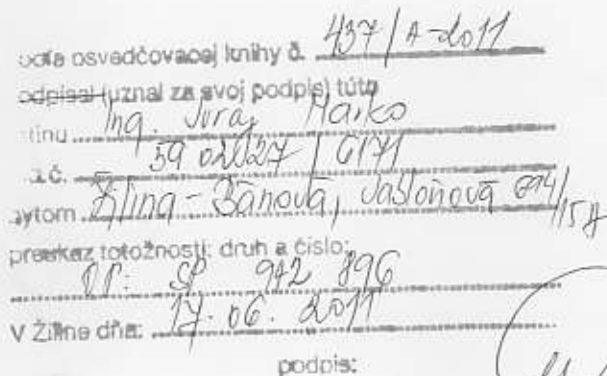 osvedčovacej knihy č. 437/A-2011
(uznal za svoj podpis) túto
Ing. Juraj
č. 6171
bytom Žilina-Bánová, Jabloňová
preukaz totožnosti: druh a číslo:
OP: SP 942 896
V Žiline dňa: 17. 06. 2011
podpis: